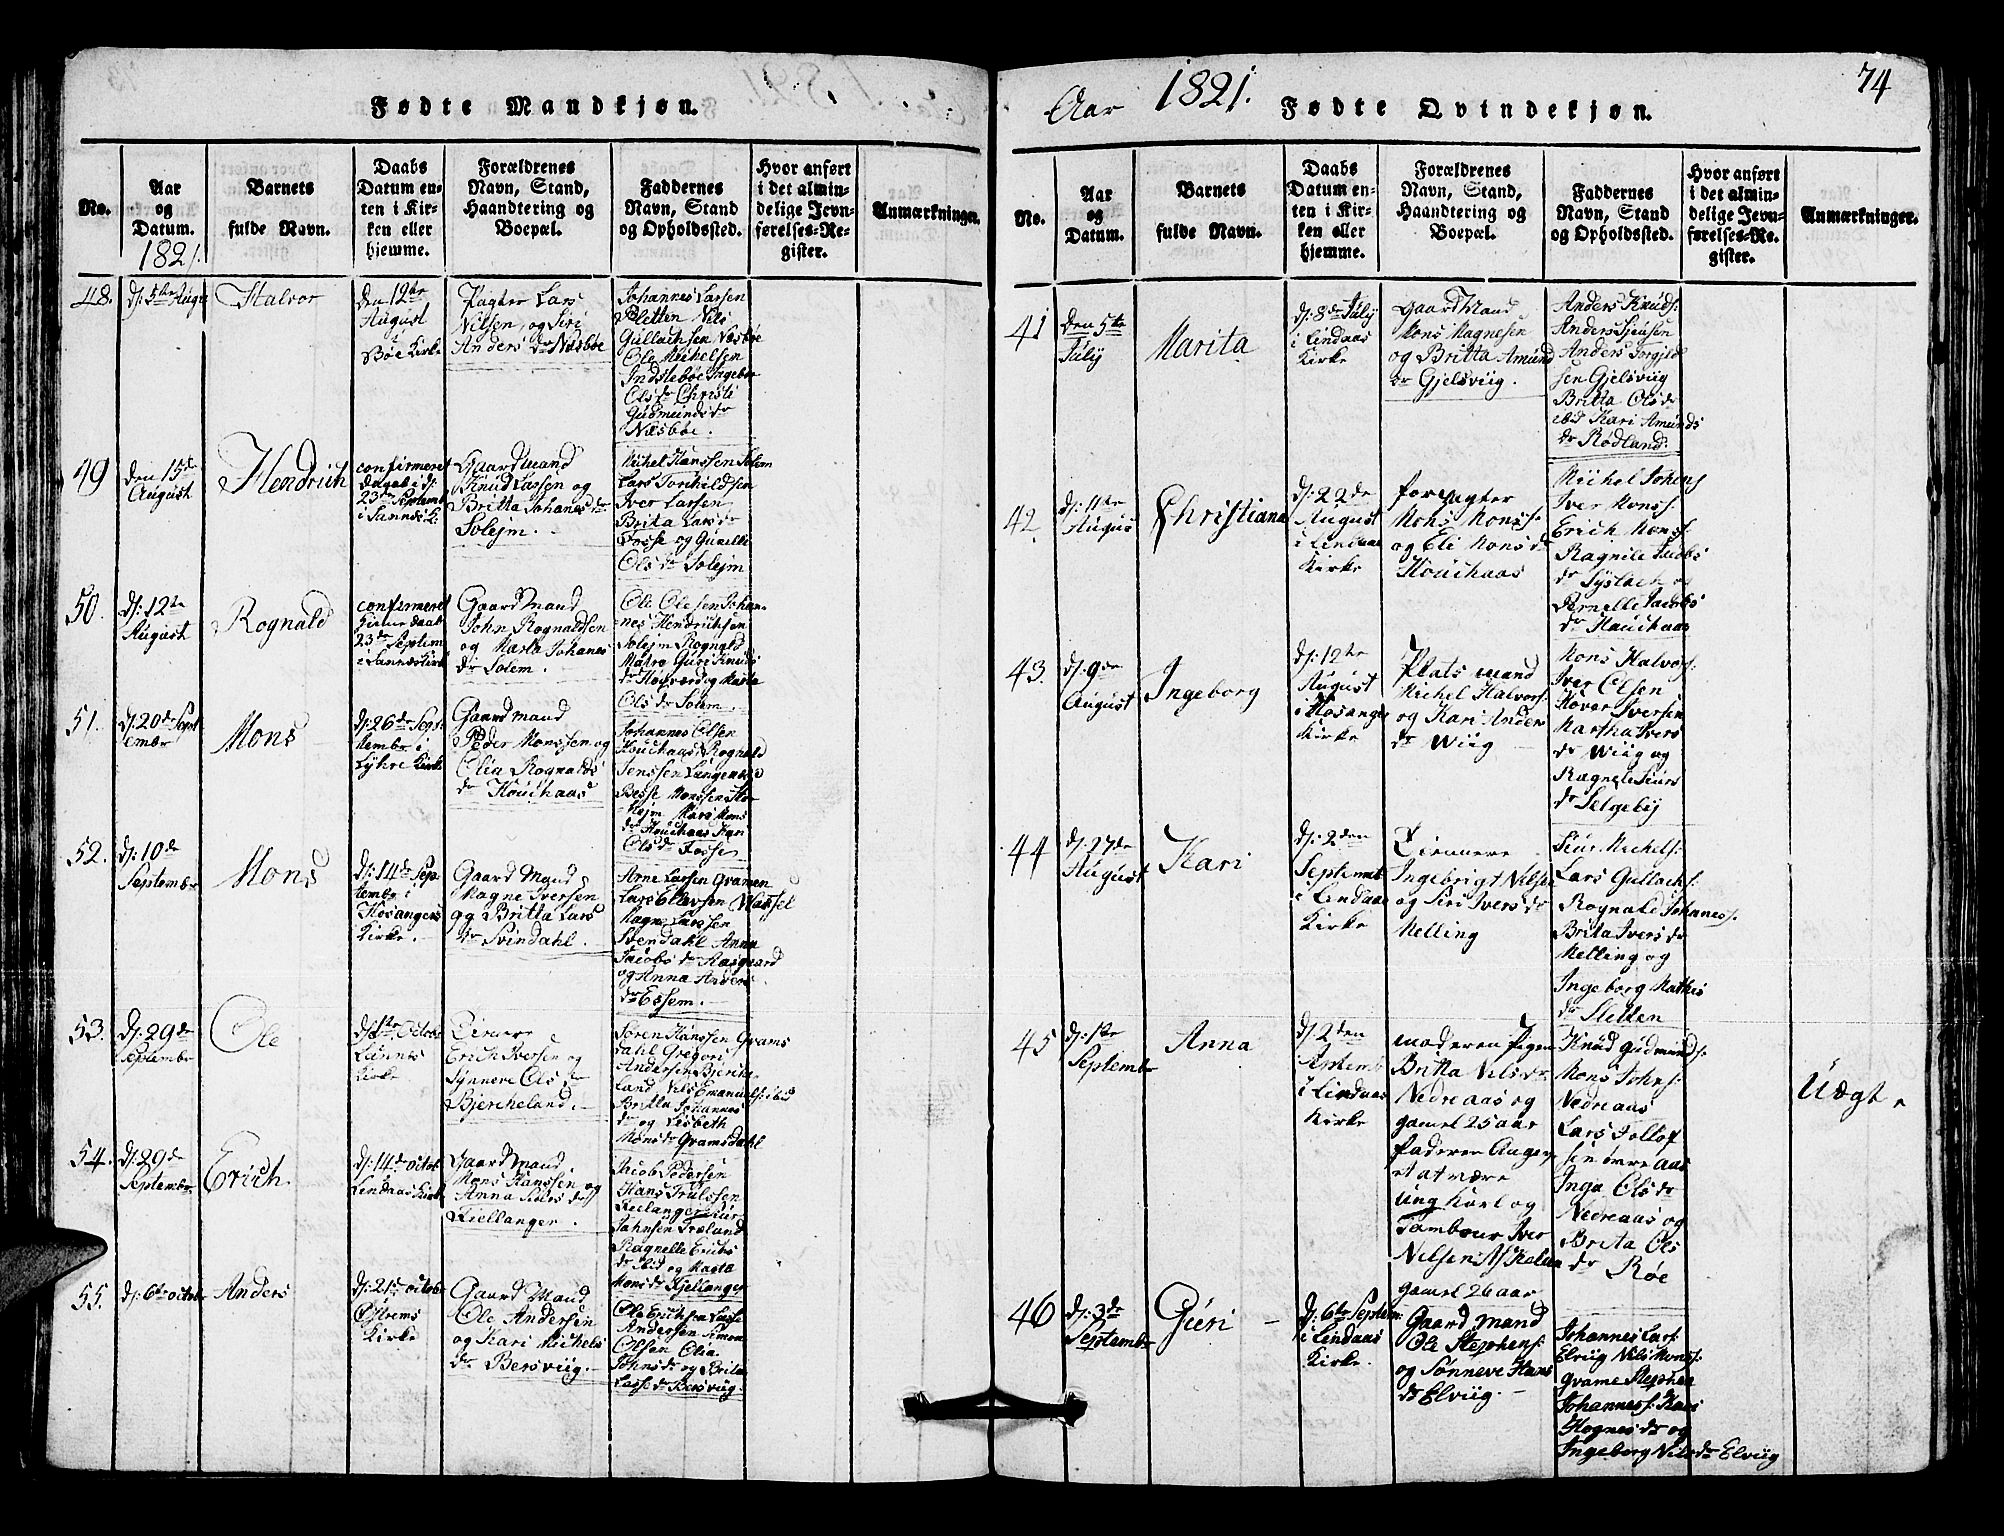 Fødte Mandkjøn.
No.
Aar
og
Datum.
1821.
Barnets
fulde Navn.
Daabs
Datum en-
ten i Kir-
ken eller
hjemme.
Forældrenes
Navn, Stand,
Haandtering og
Boepæl.
Faddernes
Navn, Stand
og Opholdssted.
Hvor anført
i det almin-
delige Jevn-
førelses-Re-
gister.
Anmærkninger.
48.
d: 5te Augu
Halvor
den 12te
August
i
Bøe Kirke
Pagter Lars
Nilsen, og Siri
Anders dr Næsbøe
Johannes Larsen
Sletten Nils
Gullachsen Næsbøe
Ole Michelsen
Indstebøe Ingebor
Ols dr Christi
Gudmunds dr
Næsbøe.
49
den 15de
August
Hendrich
confirmeret
Daab i d:
23de Septemb
i Sannes K:
Gaardmand
Knud Larsen og
Britta Johanes dr
Solejm.
Michel Hanssen Solem
Lars Torchildsen
Iver Larsen
Brita Lars dr
Fosse og Gunelle
Ols dr Solejm
50.
d: 12te
August
Rognald
confirmeret
hieme daab
23de Septem
i Sannes Kirke
Gaard Mand
John Rognaldsen
og Marta Johanes
dr Solem.
Ole Olesen Johan-
nes Hendrichsen
Solejm Rognald
Matre Guri Knuds
dr Høyværd og Marta
Ols dr Solem.
51.
d: 20de Sept
embr
Mons
d: 26de Sept
tembr i
Lyhre Kirke
Gaardmand
Peder Monssen og
Olia Rognalds
dr Houchaas
Johannes Olsen
Houchaas Rognald
Jenssen Langenæs
Besse Monssen Sto-
Hojm Mari Mons
dr Houchaas Kari
Ols dr Fosse
52.
d: 10de
Septembr
Mons
d: 14de Sep
tembr i
Hosanger
Kirke.
Gaard Mand
Magne Iversen
og Britta Lars
dr Svindahl.
Arne Larsen Gramen
Lars Ellevsen
Magne Larssen
Svendahl Anna
Jacobs dr Aasgaard
og Anna Anders
dr Essem.
53.
d: 29de
Septembr
Ole
d: 1te Octobr
Kirke
Erich Iversen og
Synneve Ols dr
Bjercheland.
Søren Hanssen Grams
dahl Gregori
Andersen Bjerche
land Nils Emanuels: ibid
Britta Johannes
dr og Lisbeth
Mons dr Gramsdahl
54.
d: 29de
Septembr
Erich
d: 14de octob
Lindaas Kirk
Gaard Mand
Mons Hanssen og
Anna Siurs dr
Kiellanger.
Jacob Pedersen
Hans Trulssen
Kielanger Siur
Johnsen Træland
Ragnelle Erichs
dr ibid og Marta
Mons dr Kjellanger
55.
d: 6te octobr
Anders
d: 21de octobr
Østrems
Kirke
Gaard Mand
Ole Andersen
og Kari Michels
dr Bersviig.
Ole Erichsen Lasse
Andersen Simon
Olsen Olia
Johns dr og Brita
Lasse dr Bersviig.
Aar 1821.
Fødte Qvindekjøn.
74
No.
Aar
og
Datum.
Barnets
fulde Navn.
Daabs
Datum en-
ten i Kir-
ken eller
hjemme.
Forældrenes
Navn, Stand,
Haandtering og
Boepæl.
Faddernes
Navn, Stand
og Opholdssted.
Hvor anført
i det almin-
delige Jevn-
førelses-Re-
gister.
Anmærkninger.
41
Den 5te
July
Marita
d: 8de July
i Lindaas
Kirke
Gaard Mand
Mons Magnesen
og Britta Amund
dr Gjelsviig.
Anders Knuds:
Anders Jensen
Anders Torgild
sen Gjelsviig
Britta Ols dr
ibid Kari Amunds
dr Rødland
42
d: 11te
August
Christiana
d: 22de
August
i Lindaas
Kirke
forpagter
Mons Mons:
og Eli Mons dr
Houchaas
Michel Johans
Iver Mons:
Erich Mons:
Ragnile Jacobs
dr Syslach og
Pernelle Jacobs
dr Houchaas
43.
d: 9de
August
Ingeborg
d: 12te
August
i Hosanger
Kirke
Plats mand
Michel Halvors:
og Kari Anders
dr Wiig
Mons Halvors:
Iver Olsen
Hover Iversen
Martha Ivers
dr Wiig og
Ragnele Siurs
dr Selgebij
44
d: 27de
August
Kari
d: 2den
Septembr
i Lindaas
Kirke
Tienere
Ingebrigt Nilsen
og Siri Ivers dr
Melling
Siur Michels:
Lars Gullachs:
Rognald Johaness:
Brita Ivers dr
Melling og
Ingeborg Mathis
dr Sletten
45
d: 1te
Septembr
Anna
d: 2den
Septemb
i Lindaas
Kirke
moderen Pigen
Britta Nils dr
Nedreaas og
gamel 25 aar
faderen Angev
et at være
ung Karl og
Tambour Iver
Nilsen Askeland
gamel 26 aar
Knud Gudmunds:
Mons Johns:
Nedreaas
Lars Tollof
sen øvre aas
Inga Ols dr
Nedreaas og
Brita Ols
dr Røe
Uægt.
46
d: 3de
Septembr
Guri
d: 6te Septem:
i Lindaas
Kirke.
Gaard Mand
Ole Stephens:
og Sønneve Hans
dr Elviig.
Johannes Lars:
Elviig Nils Mons:
Grame Stephen
Johanness: Kari
Hognes dr og
Ingeborg Nils dr Elviig